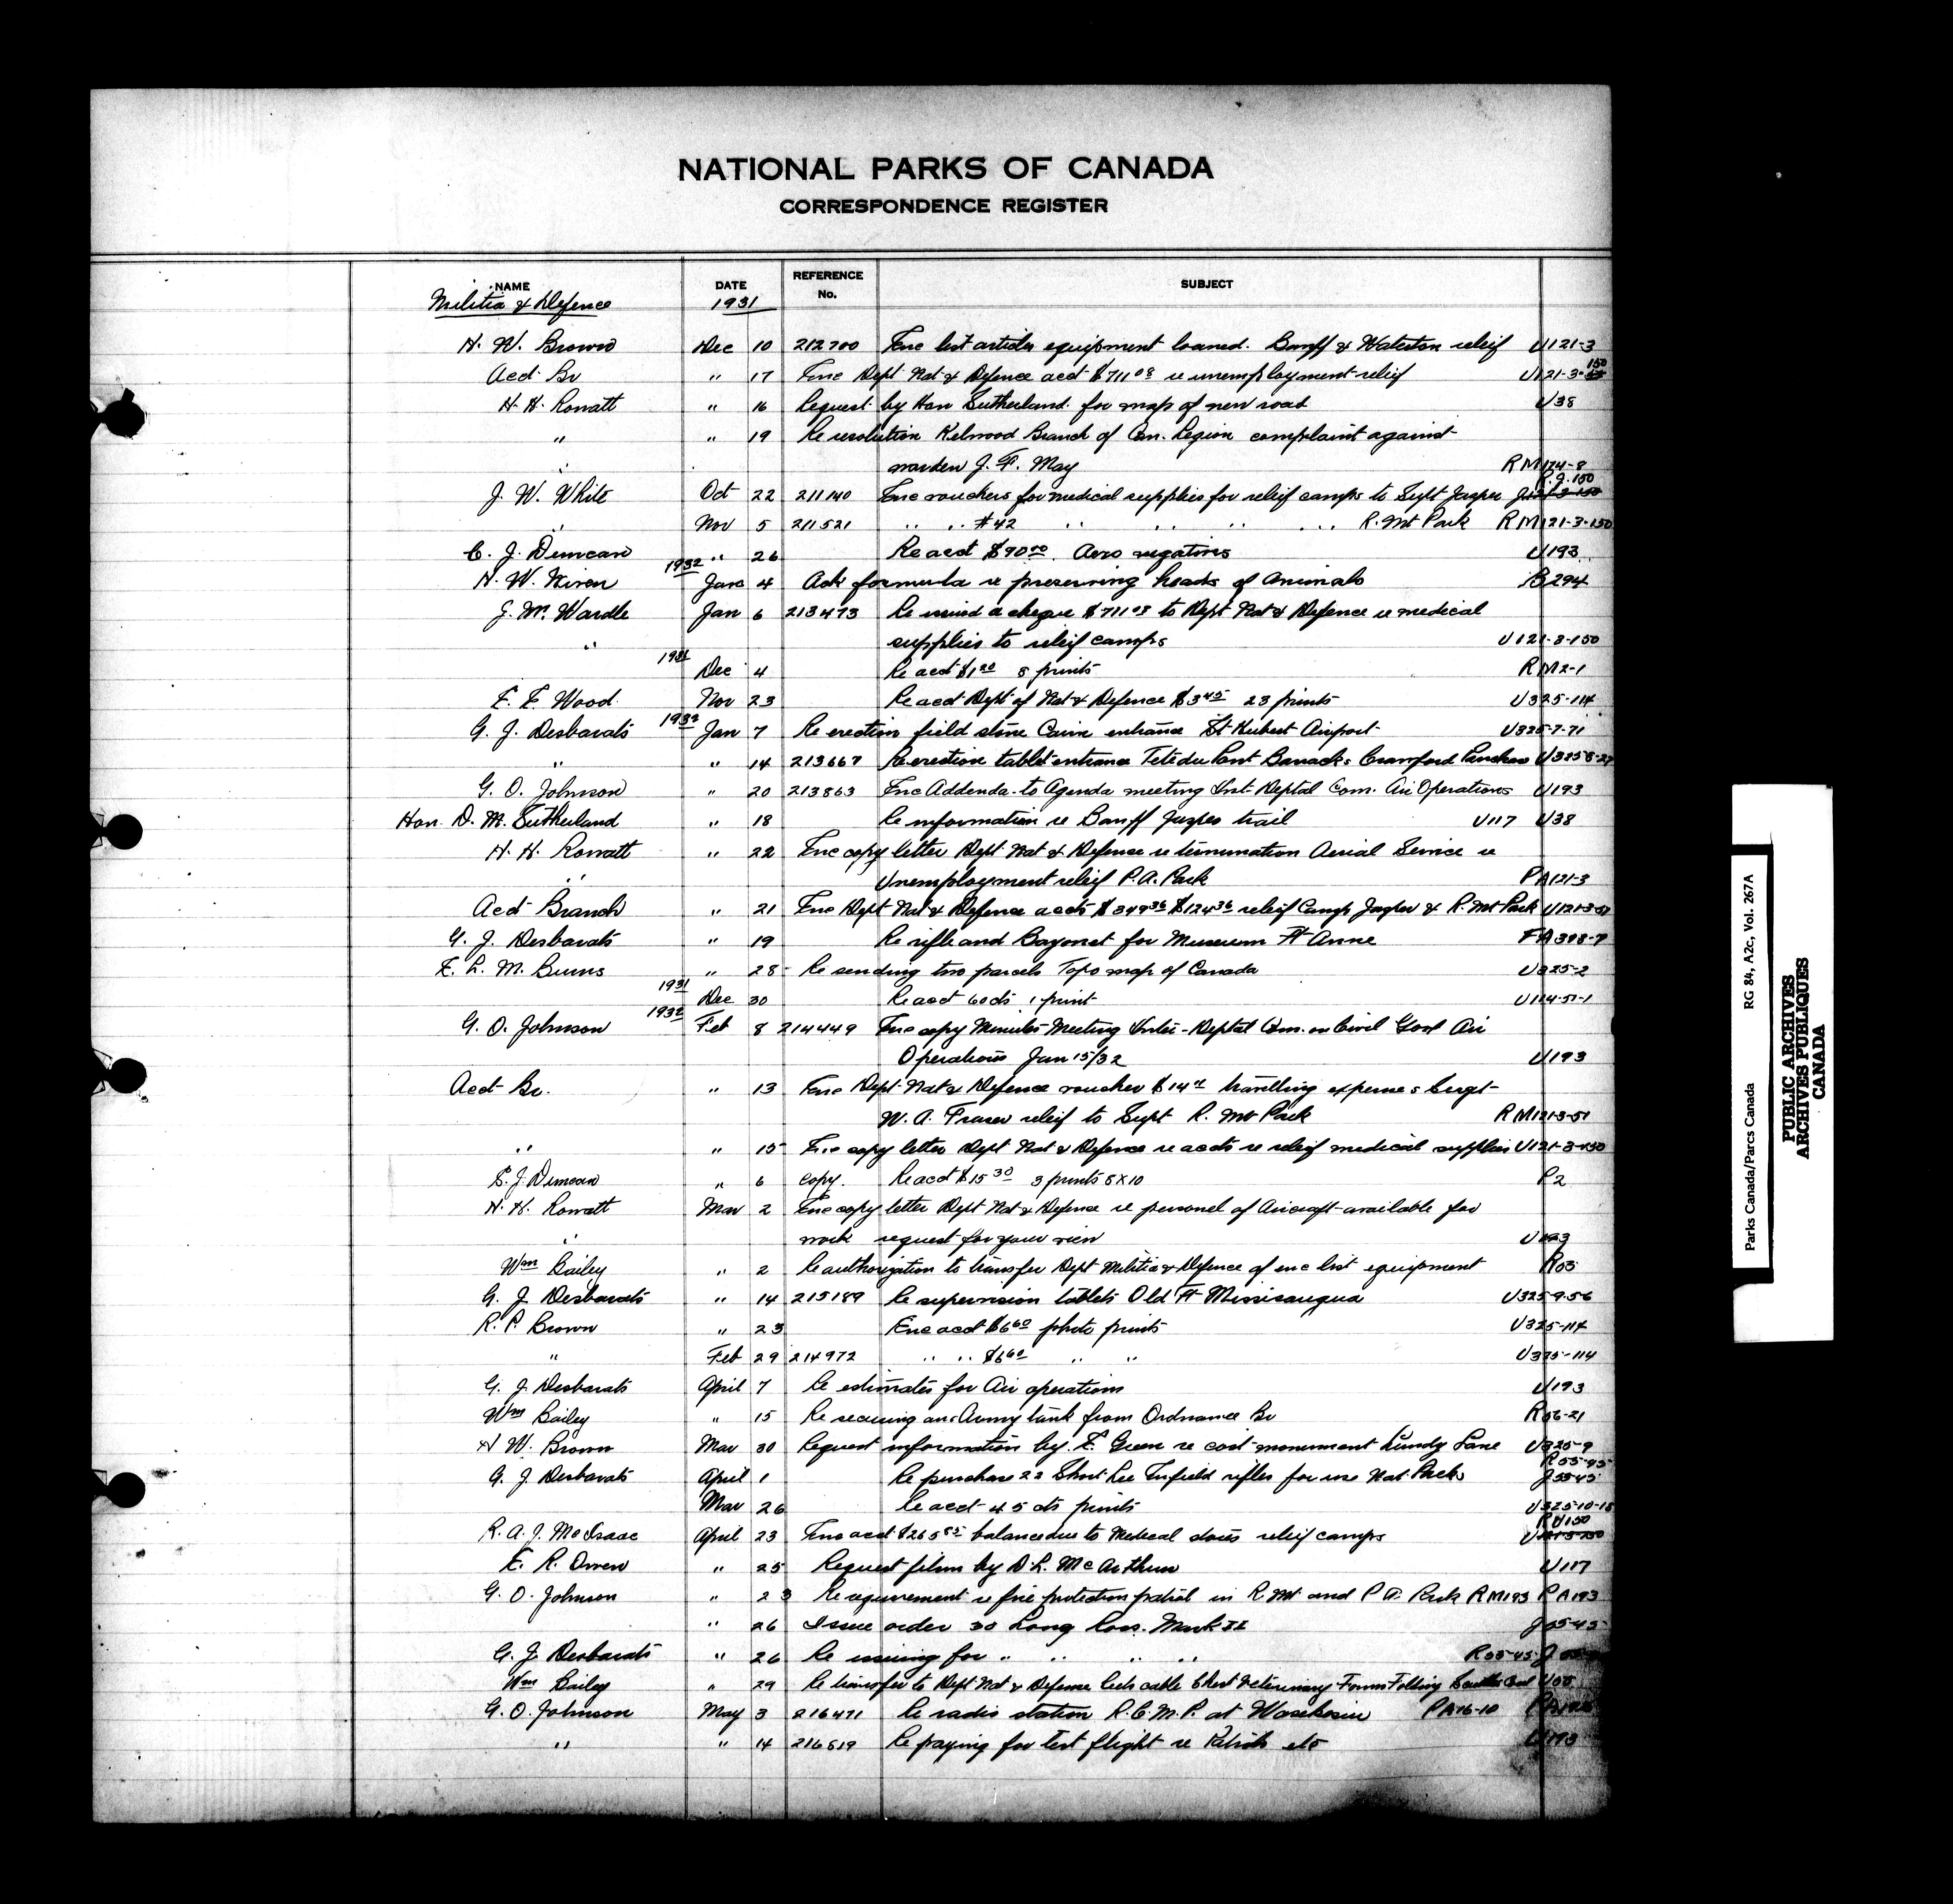 NATIONAL PARKS OF CANADA
CORRESPONDENCE REGISTER
NAME DATE REFERENCE No. SUBJECT
Militia & Defence 1931
H. W. Brown Dec 10 212700 Enc list articles equipment loaned. Banff & Waterton releif U121-3
Acct Br " 17 Enc Dept Nat & Defence acct $711 08 re unemployment relief U121-3-150
H. H. Rowatt " 16 Request by Hon Sutherland for map of new road U38
" " 19 Re resolution Kelwood Branch of Can. Legion complaint against
" warden J. F. May RM174-8
J. W. White Oct 22 211140 Enc vouchers for medical supplies for relief camps to Supt Jasper
" Nov 5 211521 " " #42 " " " " R. Mt Park RM121-3-150
C. J. Duncan " 26 Re acct $90 00. Aero negatives U193
1932
H. W. Niven Jan 4 Ask formula re preserving heads of animals B294
J. M. Wardle Jan 6 213473 Re a cheque $711 08 to Dept Nat & Defence re medical
" supplies to releif camps U121-3-150
1931 Dec 4 Re acct $1 20 8 prints RM2-1
E. E. Wood. Nov 23 Re acct Dept of Nat & Defence $3 45 23 prints U325-114
G. J. Desbarats 1932 Jan 7 Re erection field stone Cairn entrance St Hubert Airport U325-7-71
" " 14 213667 Re erection tablet entrance Tete du Pont Barracks Crawford
G. O. Johnson " 20 213863 Enc Addenda to Agenda meeting Int-Deptal Com. Air Operations U193
Hon. D. M. Sutherland " 18 Re information re Banff Jasper trail U117 U38
H. H. Rowatt " 22 Enc copy letter Dept Nat & Defence re termination Aerial Service re
" Unemployment relief P.A. Park PA121-3
Acct Branch " 21 Enc Dept Nat & Defence accts $349 36 $124 36 relief Camp Jasper & R. Mt Park U121-3-51
G. J. Desbarats " 19 Re rifle and Bayonet for Museum Ft Anne FA308-7
E. L. M. Burns " 28 Re sending two parcels Topo map of Canada U325-2
1931 Dec 30 Re acct 60cts 1 print U114-51-1
1932
G. O. Johnson Feb 8 214449 Enc copy Minutes Meeting Inter-Deptal Com. on Civil Govt Air
Operations Jan 15/32 U193
Acct Br. " 13 Enc Dept Nat & Defence voucher $14 travelling expenses Sergt
W. A. Fraser releif to Supt R. Mt Park RM121-3-51
" " 15 Enc copy letter Dept Nat & Defence re accts re releif medical supplies U121-3-150
C. J. Duncan " 6 copy. Re acct $15 30 3 prints 8x10 P2
H. H. Rowatt Mar 2 Enc copy letter Dept Nat & Defence re personel of Aircraft available for
" work request for your view U193
Wm Bailey " 2 Re authorization to transfer Dept Militia & Defence of enc list equipment R55
G. J. Desbarats " 14 215189 Re supervision tablets Old Ft Missisaugua U325-9-56
R. P. Brown " 23 Enc acct $6 60 photo prints U325-114
" Feb 29 214972 " " $6 60 " " U325-114
G. J. Desbarats April 7 Re estimates for Air operations U193
Wm Bailey " 15 Re securing an Army tank from Ordnance Br R56-21
H W. Brown Mar 30 Request information by E. Green re cost monument Lundy Lane U325-9
R55-45
G. J. Desbarats April 1 Re purchase 22 Short Lee Enfield rifles for use Nat Parks J55-45
Mar 26 Re acct 45 cts prints U325-10-18
RU150
R. A. J. McIsaac April 23 Enc acct $265 85 balance due to Medical stores relief camps
E. R. Owen " 25 Request films by D. L. McArthur U117
G. O. Johnson " 23 Re requirement re fire protection patrol in R Mt and P A. Park RM193 PA193
" 26 Issue order 30 Long Ross. Mark II J55-45
G. J. Desbarats " 26 Re issuing for " " " " R55-45
Wm Bailey " 29 Re transfer to Dept Nat & Defence Veterinary Folding U55
G. O. Johnson May 3 216471 Re radio station R.C.M.P. at Wasekosin PA16-10
" " 14 216819 Re paying for test flight re Patrols etc U193
Parks Canada/Parcs Canada RG 84, A2c, Vol. 267A
PUBLIC ARCHIVES
ARCHIVES PUBLIQUES
CANADA